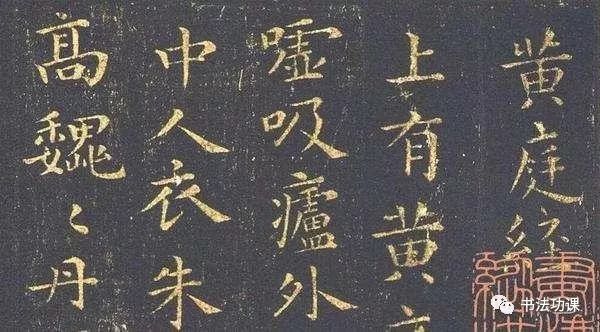 黄庭經
上有黄
嘘吸廬外
中人衣朱
高魏〻丹
书法功课